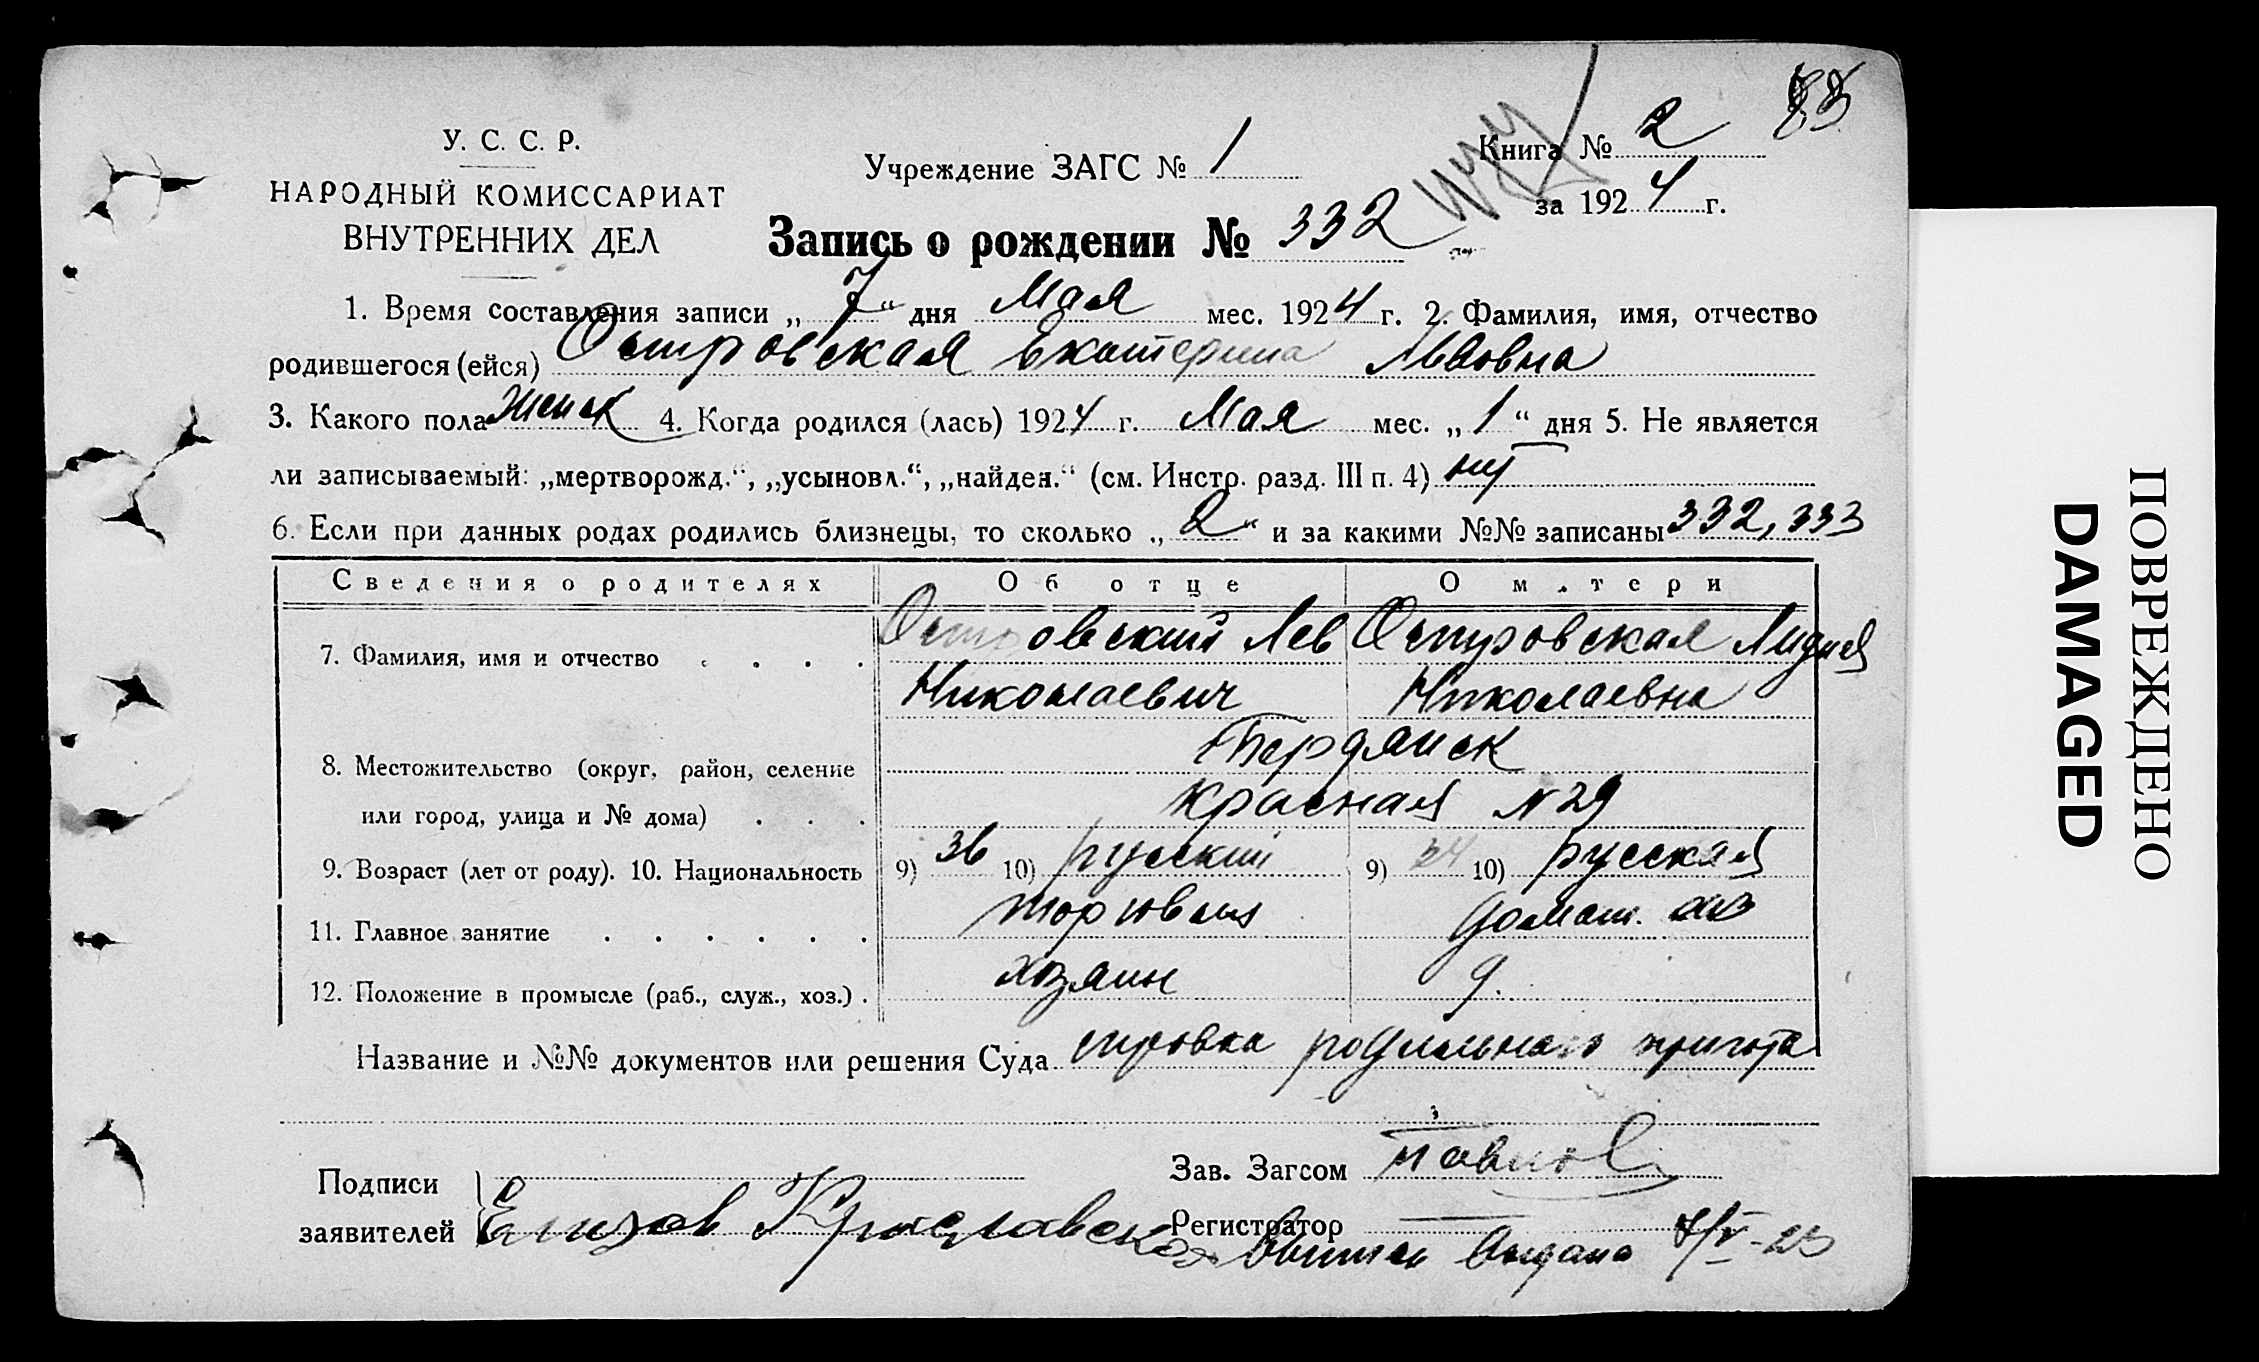 83
У. С. С. Р.
НАРОДНЫЙ КОМИССАРИАТ
ВНУТРЕННИХ ДЕЛ
Учреждение ЗАГС № 1
Книга № 2
за 1924 г.
Запись о рождении № 332
1. Время составления записи „7“ дня Мая мес. 1924 г. 2. Фамилия, имя, отчество
родившегося (ейся) Островская Екатерина Львовна
3. Какого пола Женск 4. Когда родился (лась) 1924 г. Мая мес. „1“ дня 5. Не является
ли записываемый: „мертворожд.“, „усыновл.“, „найден.“ (см. Инстр. разд. III п. 4) нет
6. Если при данных родах родились близнецы, то сколько „2“ и за какими №№ записаны 332, 333
Сведения о родителях Об отце О м.тери
7. Фамилия, имя и отчество . . . . Островский Лев Островская Лидия
Николаевич Николаевна
8. Местожительство (округ, район, селение Бердянск
или город, улица и № дома) . . . Красная N 29
9. Возраст (лет от роду). 10. Национальность 9) 36 10) русский 9) 24 10) русская
11. Главное занятие . . . . . . торговля домаш. хоз
12. Положение в промысле (раб., служ., хоз.) . хозяин д.
Название и №№ документов или решения Суда справка родильного приюта
Зав. Загсом Павлов
Подписи
заявителей Регистратор
выдана
ПОВРЕЖДЕНО
DAMAGED